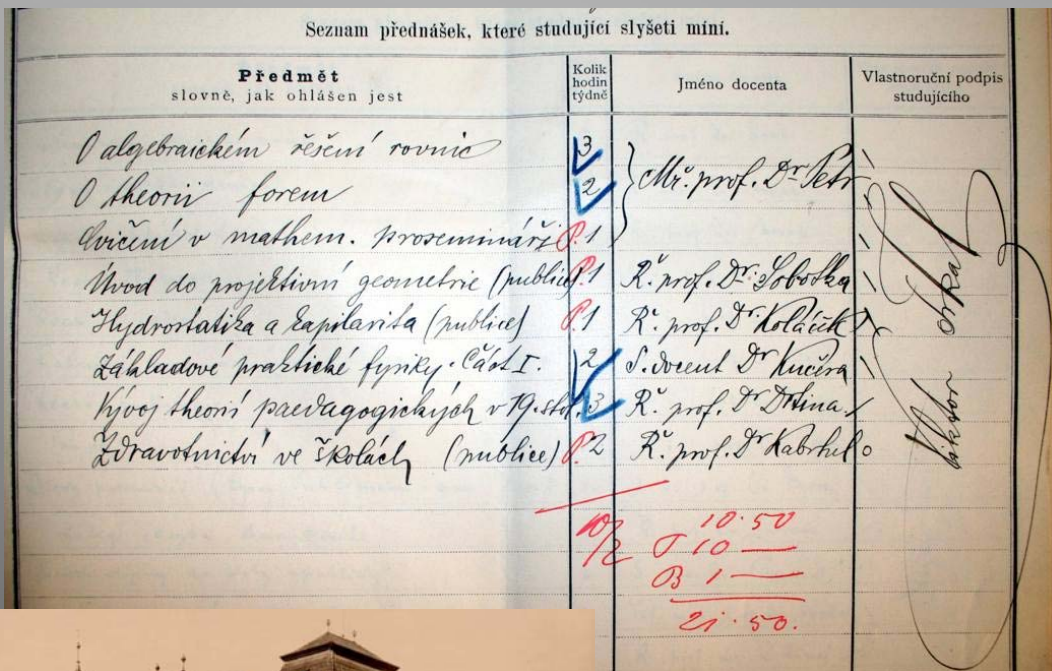 Seznam přednášek, které studující slyšeti míní.
Předmět
slovně, jak ohlášen jest
Kolik hodin týdně
Jméno docenta
Vlastnoruční podpis studujícího
O algebraickém řešení rovnic 3
O theorii forem 2 Mř. prof. Dr Petr
Cvičení v mathem. prosemináři P. 1
Úvod do projektivní geometrie (publice) P. 1 Ř. prof. Dr. Sobotka
Hydrostatika a kapilarita (publice) P. 1 Ř. prof. Dr Koláček
Základové praktické fysiky. Část I. 2 S. docent Dr Kučera
Vývoj theorií paedagogických v 19. stol. 3 Ř. prof. Dr Drtina
Zdravotnictví ve školách (publice) P. 2 Ř. prof. Dr Kabrhel
Viktor
10/2 10·50
T 10 —
B 1 —
21·50.